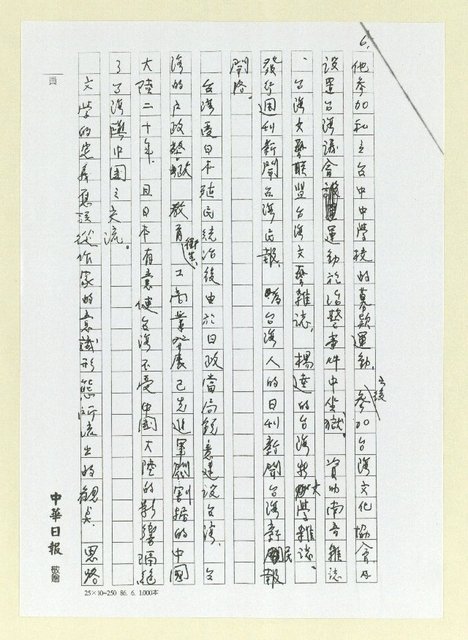 6. 他參加私立台中中學校的募款運動. 去後 參加台灣文化協會及
設置台灣議會運動於治警事件中坐獄. 資助南音雜誌
、台灣大藝聯盟台灣文藝雜誌. 楊逵的台灣新文學雜誌.
發行週刊新聞台灣民報, 台灣人的日刊新聞台灣新民報
開路.
台灣受日本殖民統治後由於日政當局銳意建設台灣. 台
灣的內政整頓 教育 衛生 工商業發展已先進軍閥割據的中國
大陸二十年. 且日本有意使台灣不受中國大陸的影響隔絕
了台灣與中國之交流.
文學的完善應該從作家的意識形態所流出的觀點 思路
頁
中華日報 敬贈
25×10=250 86. 6. 1,000本